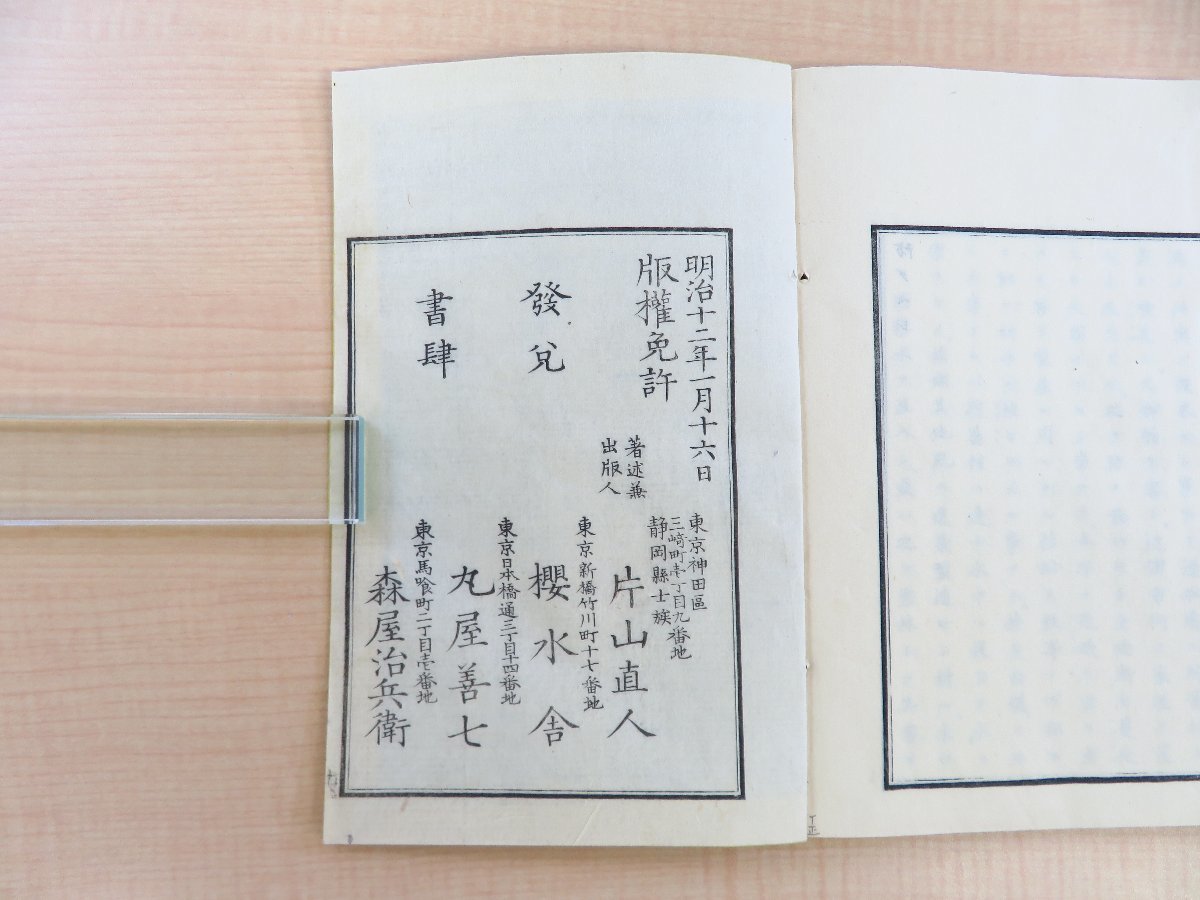 明治十二年一月十六日
版權免許
東京神田區
三崎町壱丁目九番地
静岡縣士族
著述兼
出版人
片山直人
發兌
東京新橋竹川町十七番地
櫻水舎
東京日本橋通三丁目十四番地
丸屋善七
書肆
東京馬喰町二丁目壱番地
森屋治兵衛